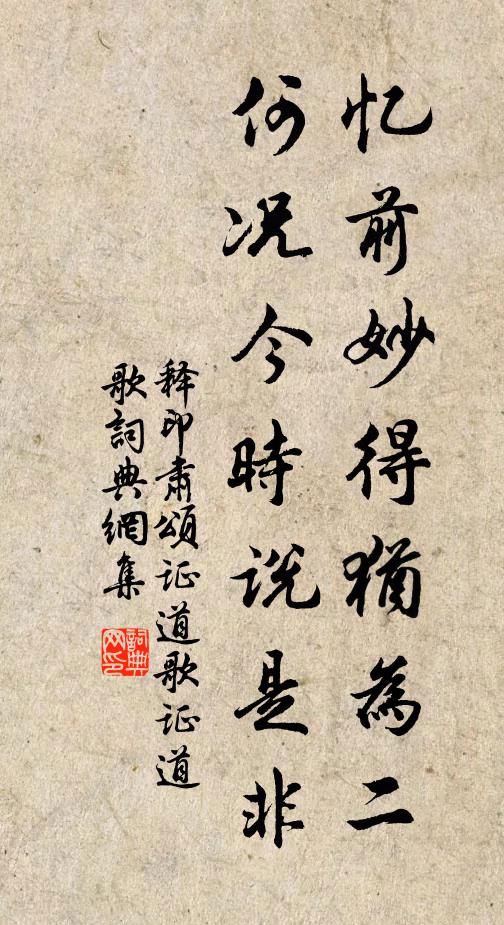 忆前妙得犹為二
何况今時说是非
释印肃颂证道歌证道
歌詞典網集
詞典网印